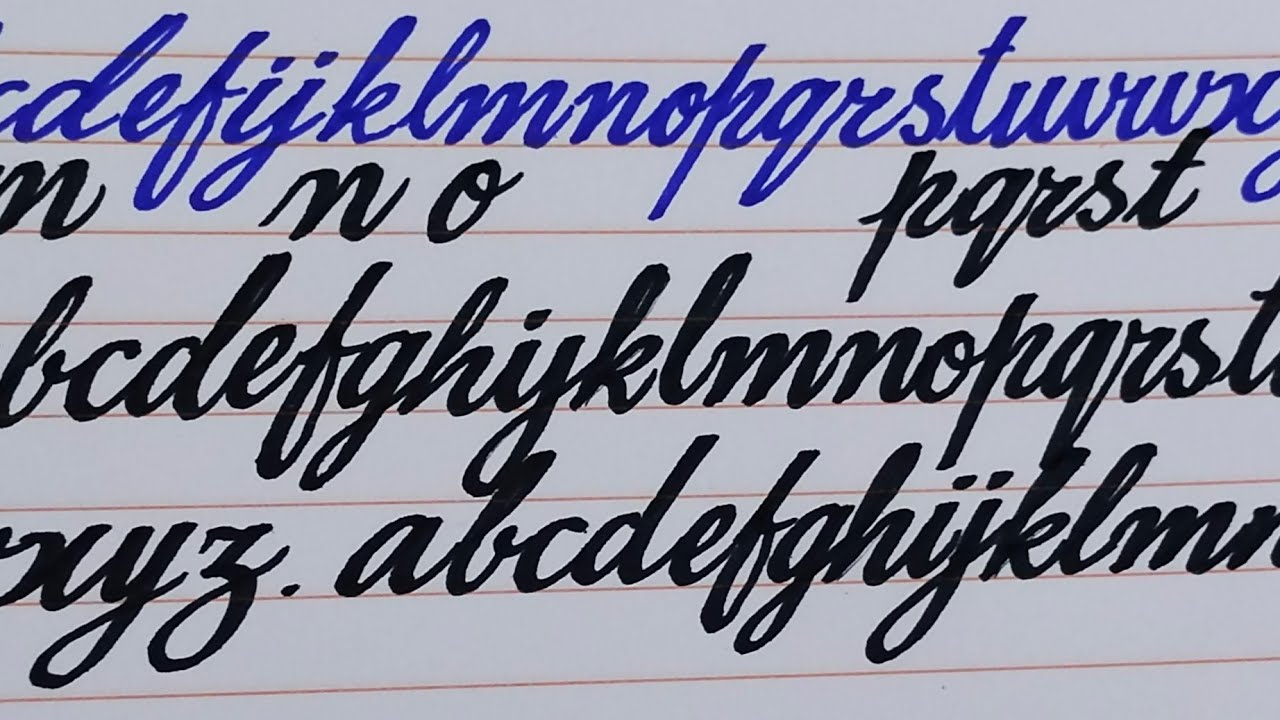 cdefijklmnopqrstuvwxy
m n o pqrst
bcdefghijklmnopqrst
xyz. abcdefghijklmn